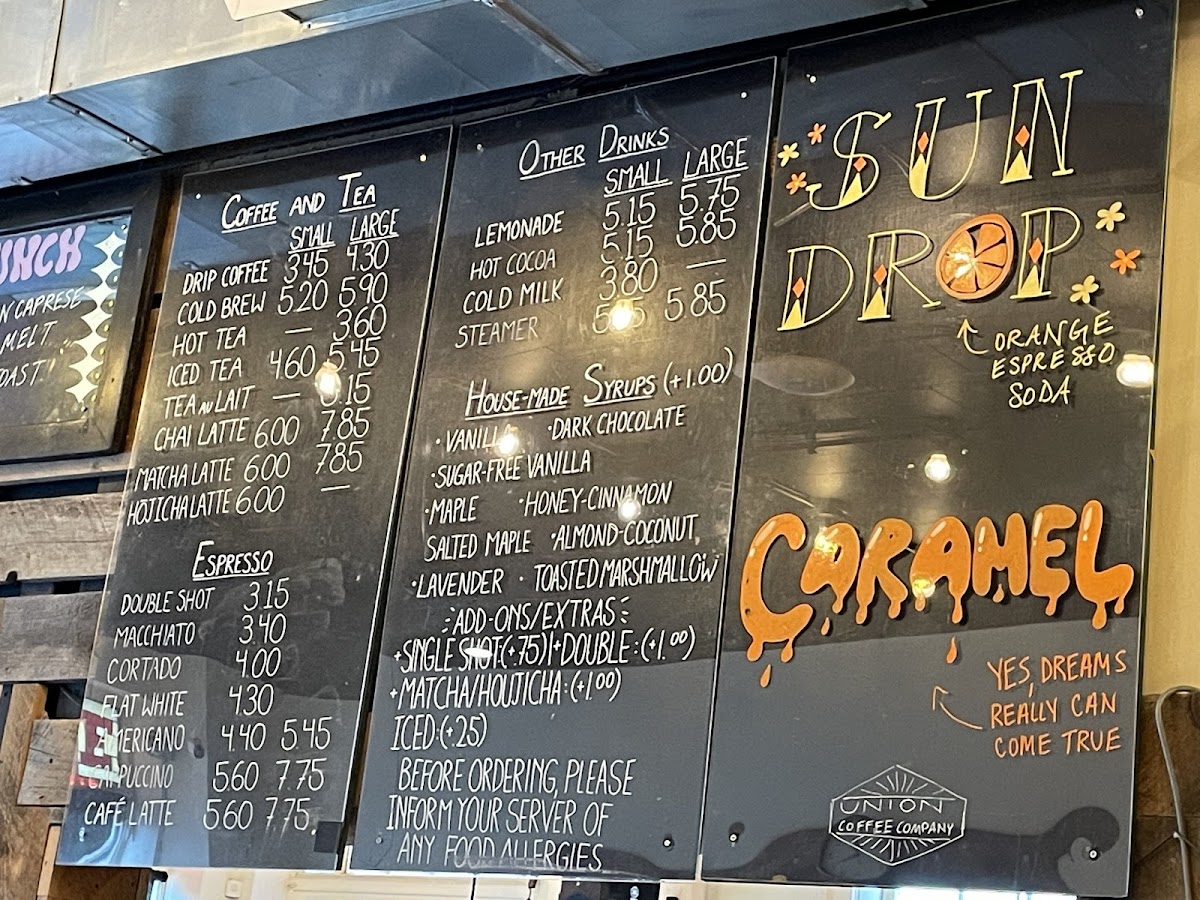 UNCH
N CAPRESE
MELT
OAST
COFFEE AND TEA
SMALL LARGE
DRIP COFFEE 3.45 4.30
COLD BREW 5.20 5.90
HOT TEA — 3.60
ICED TEA 4.60 5.45
TEA AU LAIT — 5.15
CHAI LATTE 6.00 7.85
MATCHA LATTE 6.00 7.85
HOJICHA LATTE 6.00 —
ESPRESSO
DOUBLE SHOT 3.15
MACCHIATO 3.40
CORTADO 4.00
FLAT WHITE 4.30
AMERICANO 4.40 5.45
CAPPUCCINO 5.60 7.75
CAFÉ LATTE 5.60 7.75
OTHER DRINKS
SMALL LARGE
LEMONADE 5.15 5.75
HOT COCOA 5.15 5.85
COLD MILK 3.80 —
STEAMER 5.85
HOUSE-MADE SYRUPS (+1.00)
·VANILLA ·DARK CHOCOLATE
·SUGAR-FREE VANILLA
·MAPLE ·HONEY-CINNAMON
SALTED MAPLE ·ALMOND-COCONUT
·LAVENDER · TOASTED MARSHMALLOW
ADD-ONS/EXTRAS
+SINGLE SHOT:(+.75)|+DOUBLE:(+1.00)
+MATCHA/HOUTICHA:(+1.00)
ICED:(+.25)
BEFORE ORDERING, PLEASE
INFORM YOUR SERVER OF
ANY FOOD ALLERGIES
SUN
DROP
ORANGE
ESPRESSO
SODA
CARAMEL
YES, DREAMS
REALLY CAN
COME TRUE
UNION
COFFEE COMPANY